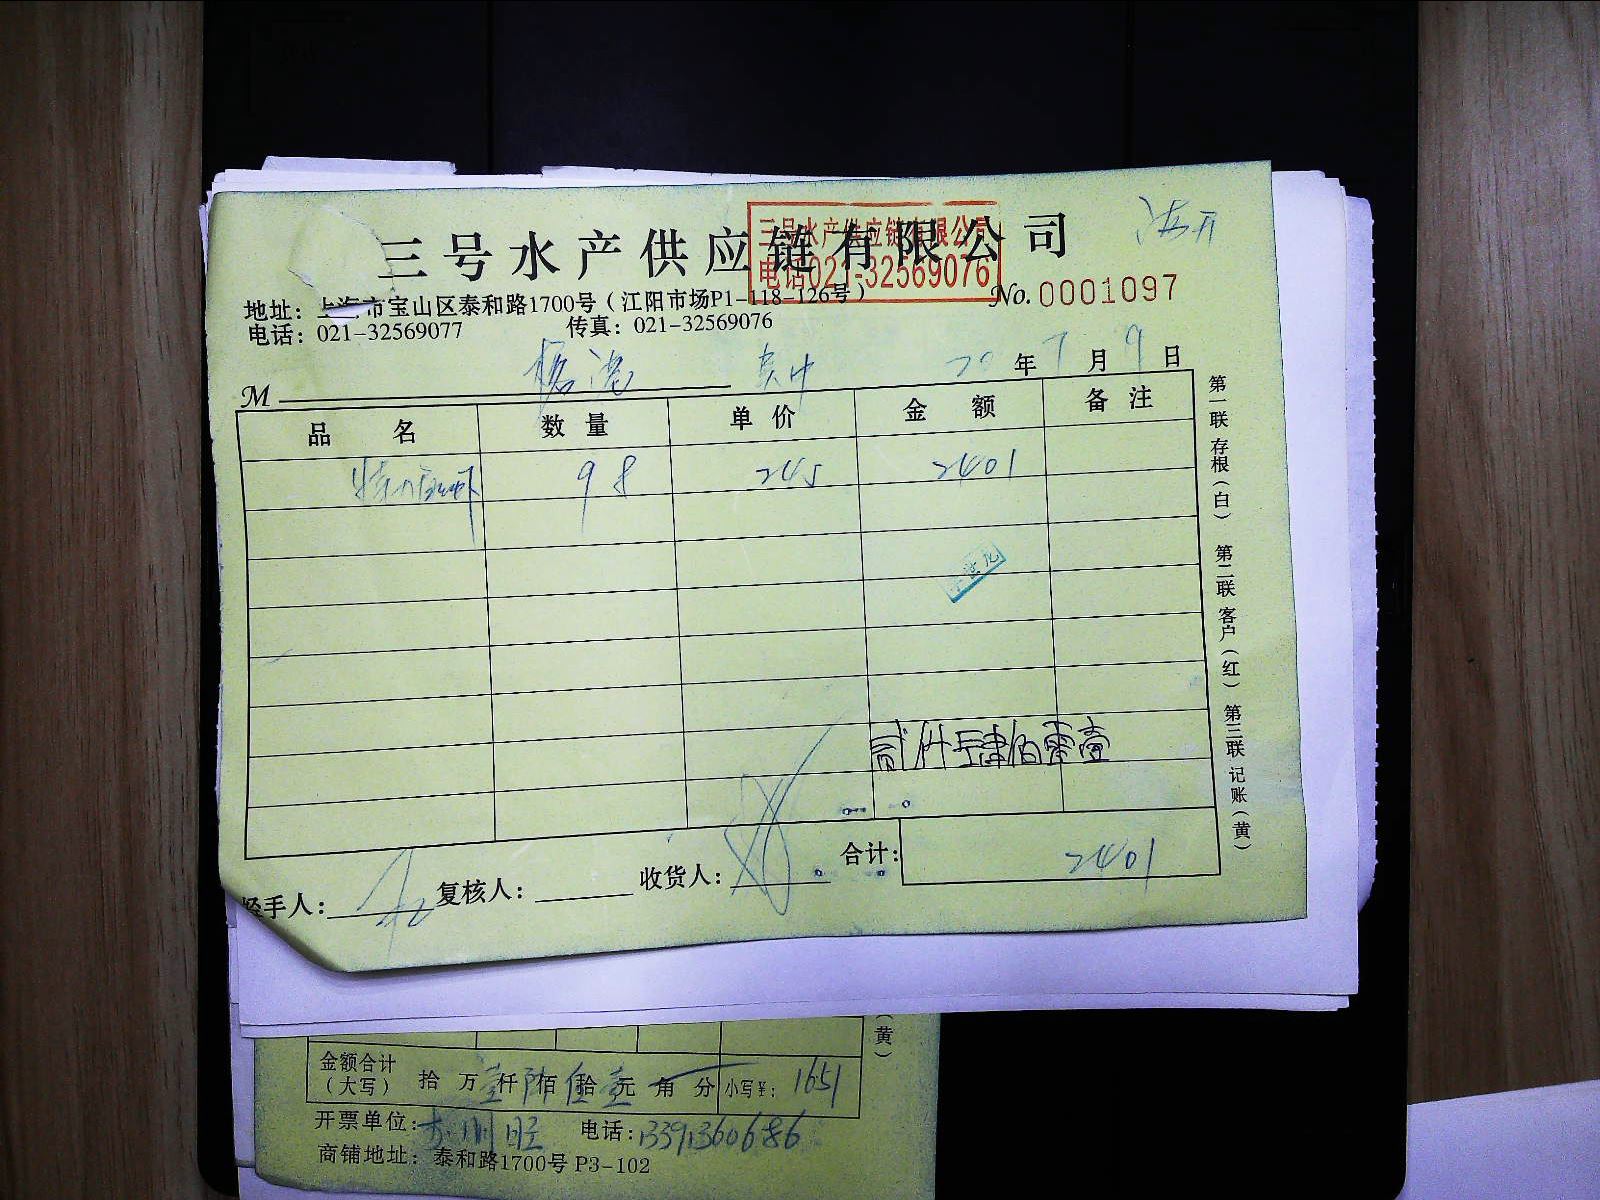 三号水产供应链有限公司
三号水产供应链有限公司
电话021-32569076
地址：上海市宝山区泰和路1700号（江阳市场P1-118-126号）
No.0001097
电话：021-32569077 传真：021-32569076
M 20年7月9日
品名 数量 单价 金额 备注
98 245 2401
贰仟肆佰零壹
合计： 2401
经手人： 复核人： 收货人：
第一联 存根（白） 第二联 客户（红） 第三联 记账（黄）
黄）
金额合计
（大写） 拾 万壹仟陆佰伍拾壹元 角 分 小写￥：1651
开票单位： 电话：13913606686
商铺地址：泰和路1700号 P3-102